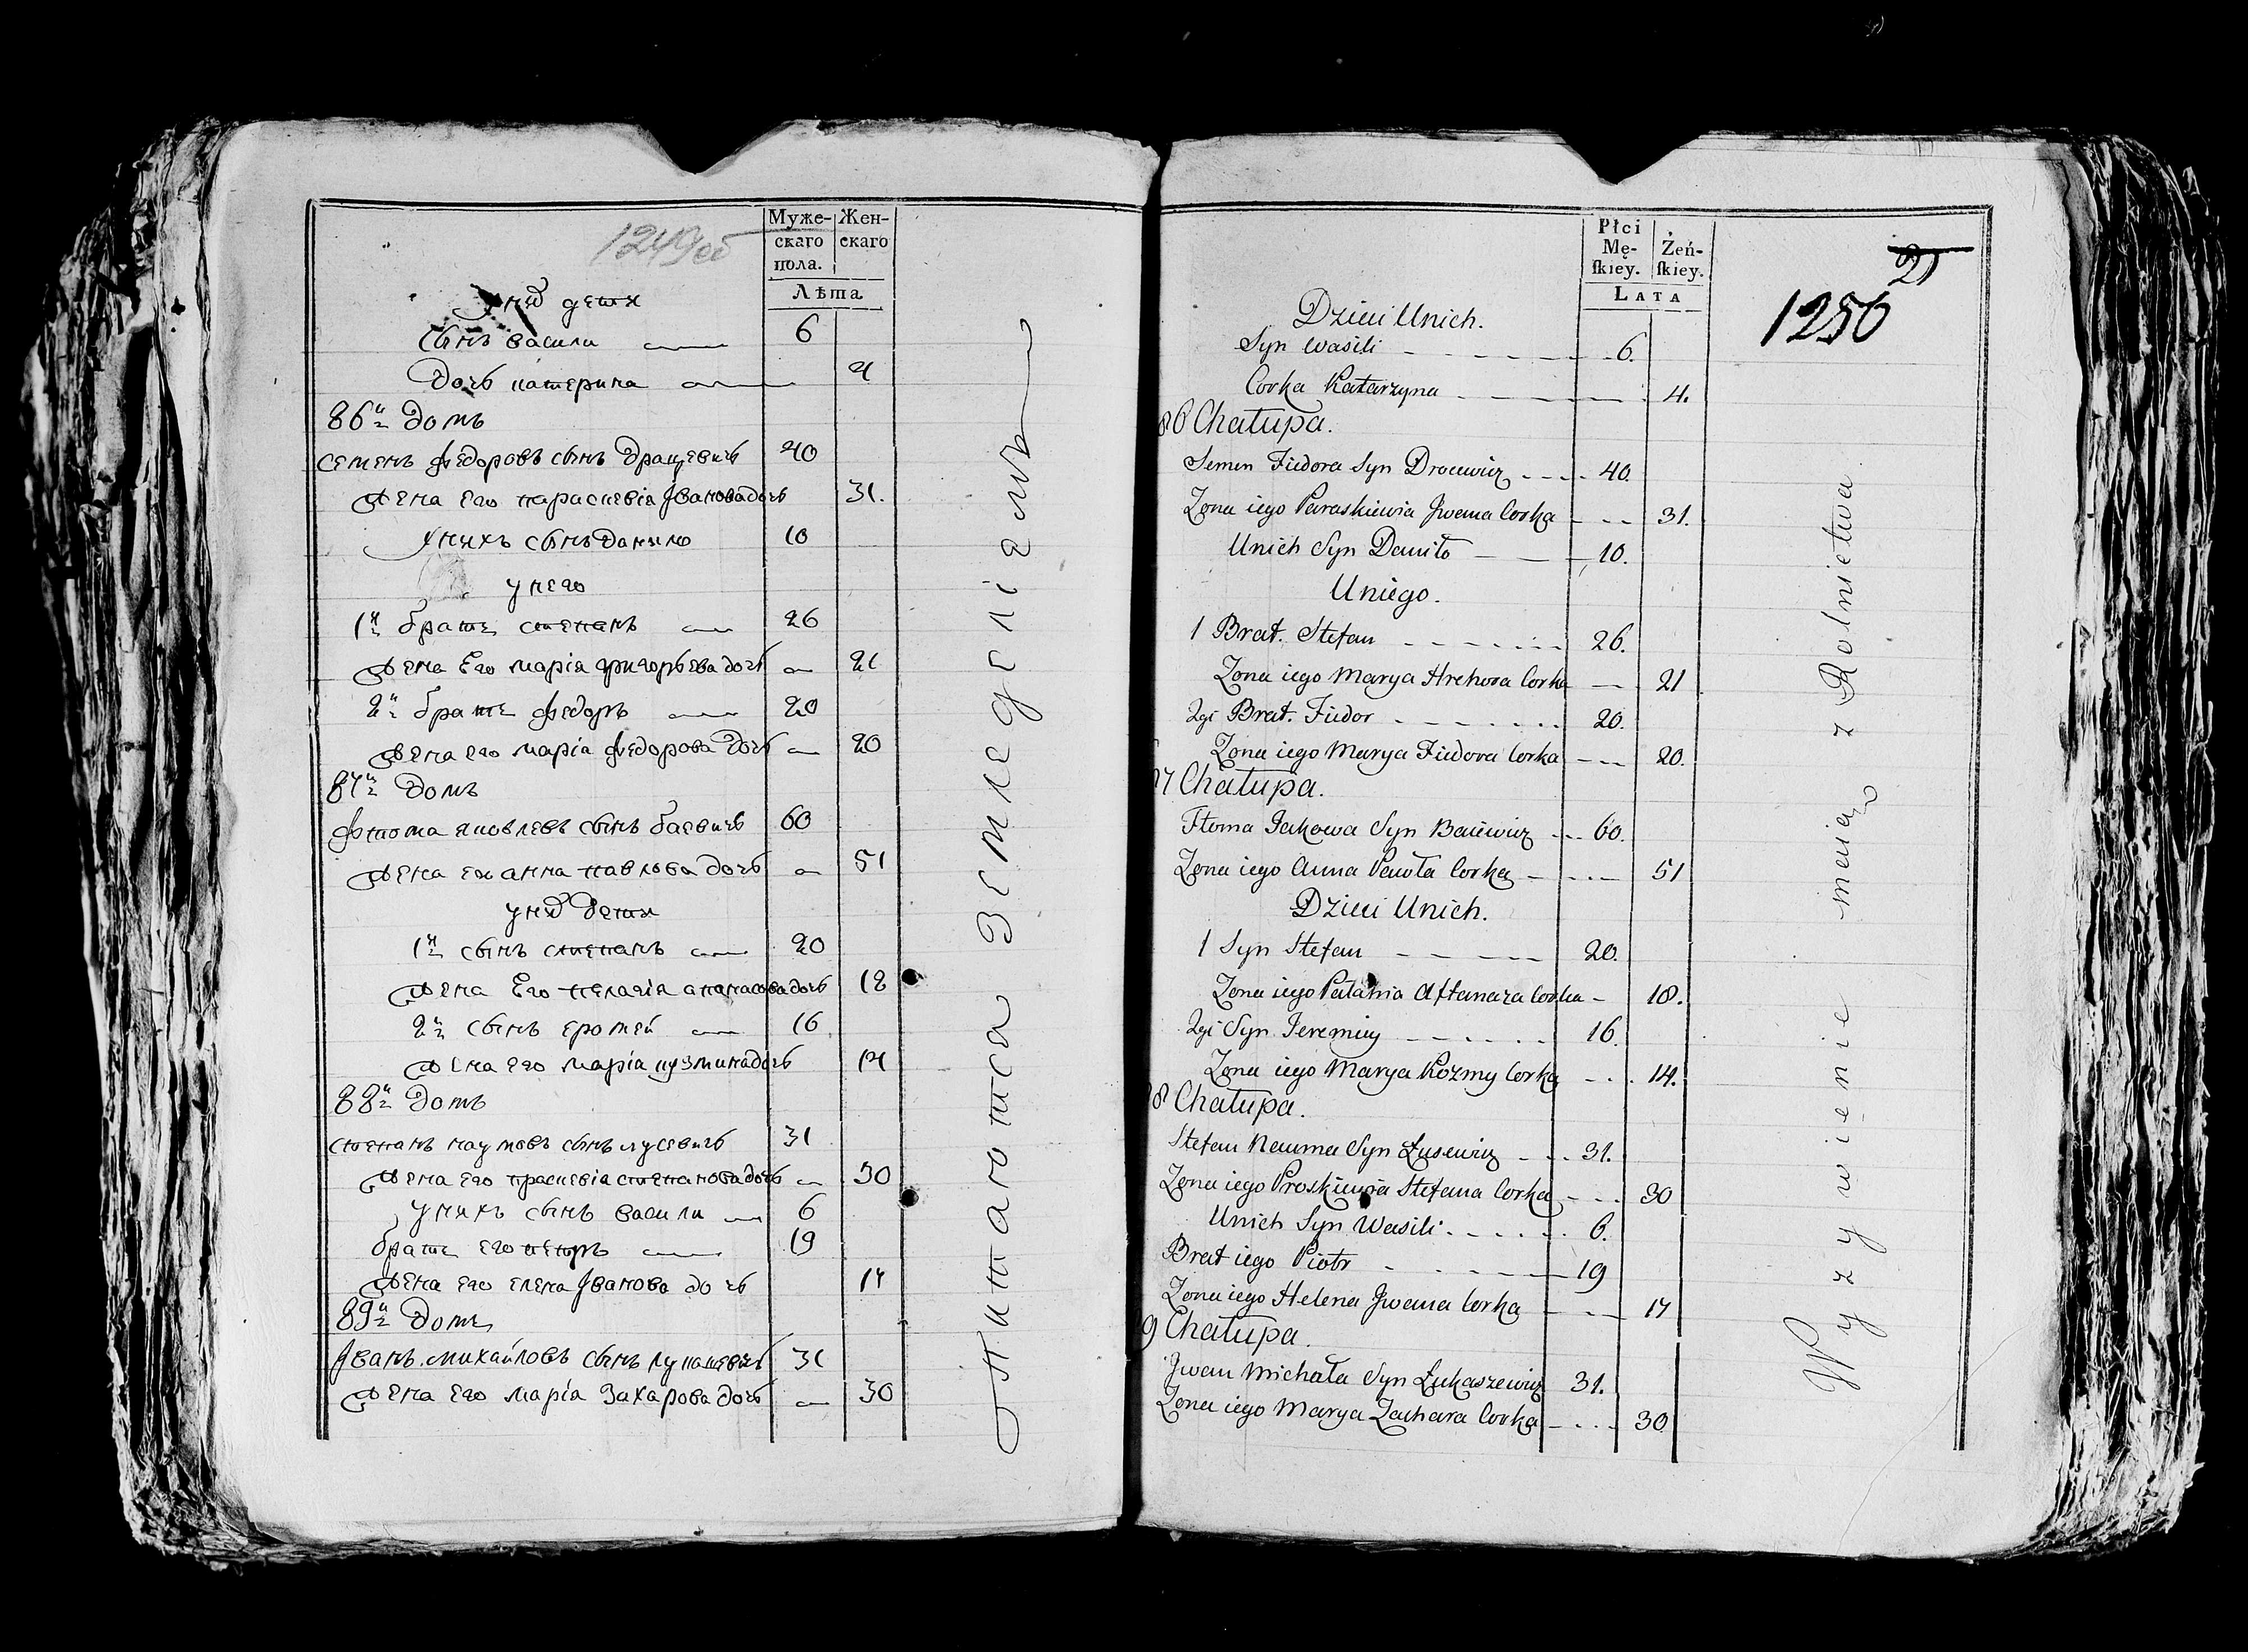 1249об
Муже-
скаго
пола.
Жен-
скаго
Лѣта
У нихъ дети
сынъ васили 6
дочь катерина 4
86й домъ
семенъ федоровъ сынъ драцевичъ 40
жена его параскевія Иванова дочь 31.
У нихъ сынъ данило 10
у него
1й братъ степанъ 26
жена его марія григорьева дочь 21
2й братъ федоръ 20
жена его марія федорова дочь 20
87й домъ
фтома яковлевъ сынъ баевичъ 60
жена ея анна павлова дочь 51
у нихъ дети
1й сынъ степанъ 20
жена его пелагія апанасова дочь 18
2й сынъ еромей 16
жена его марія кузмина дочь 14
88й домъ
степанъ наумовъ сынъ лусевичъ 31
жена его праскевія степанова дочь 30
у нихъ сынъ васили 6
братъ его петръ 19
жена его елена Иванова дочь 17
89й домъ
Иванъ михайловъ сынъ лукашевичъ 31
жена его марія Захарова дочь 30
Питаются земледеліемъ
Płci
Mę-
ſkiey.
Żeń-
ſkiey.
Lata
21
1250
Dzieci Unich.
Syn Wasili 6.
Corka Katarzyna 4.
86 Chałupa.
Semen Fiedora Syn Drocewicz 40.
Zona iego Paraskiewia Jwana Corka 31.
Unich Syn Daniło 10.
Uniego.
1 Brat. Stefan 26.
Zona iego Marya Hrehora Corka 21
2gi Brat. Fiedor 20.
Zona iego Marya Fiedora Corka 20.
7 Chałupa.
Ftoma Jakowa Syn Baiewicz 60.
Zona iego Anna Pawła Corka 51
Dzieci Unich.
1 Syn Stefan 20.
Zona iego Pałahia Aftanaza Corka 18.
2gi Syn Jeremiy 16.
Zona iego Marya Kozmy Corka 14.
8 Chałupa.
Stefan Nauma Syn Łusewicz 31.
Zona iego Proskiewia Stefana Corka 30
Unich Syn Wasili 6.
Brat iego Piotr 19
Zona iego Helena Jwana Corka 17
9 Chałupa.
Jwan Michała Syn Łukaszewicz 31.
Zona iego Marya Zachara Corka 30
Wyzywienie maią z Rolnictwa